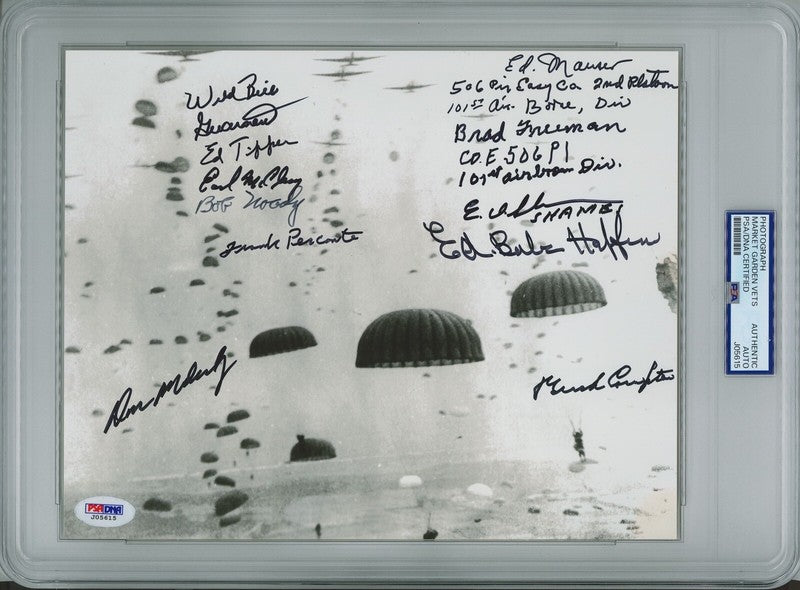 Wild Bill
Guarnere
Ed Tipper
Earl McClung
Bob Noody
Frank Perconte
Don Malarkey
Ed. Mauser
506 Pir Easy Co 2nd Platoon
101st Air Borne, Div
Brad Freeman
CO.E. 506 PI
101st airborn Div.
E. SHAMES
Ed. Babe Heffron
PSA/DNA
J05615
PHOTOGRAPH
MARKET GARDEN VETS
PSA/DNA CERTIFIED
PSA
AUTHENTIC
AUTO
J05615